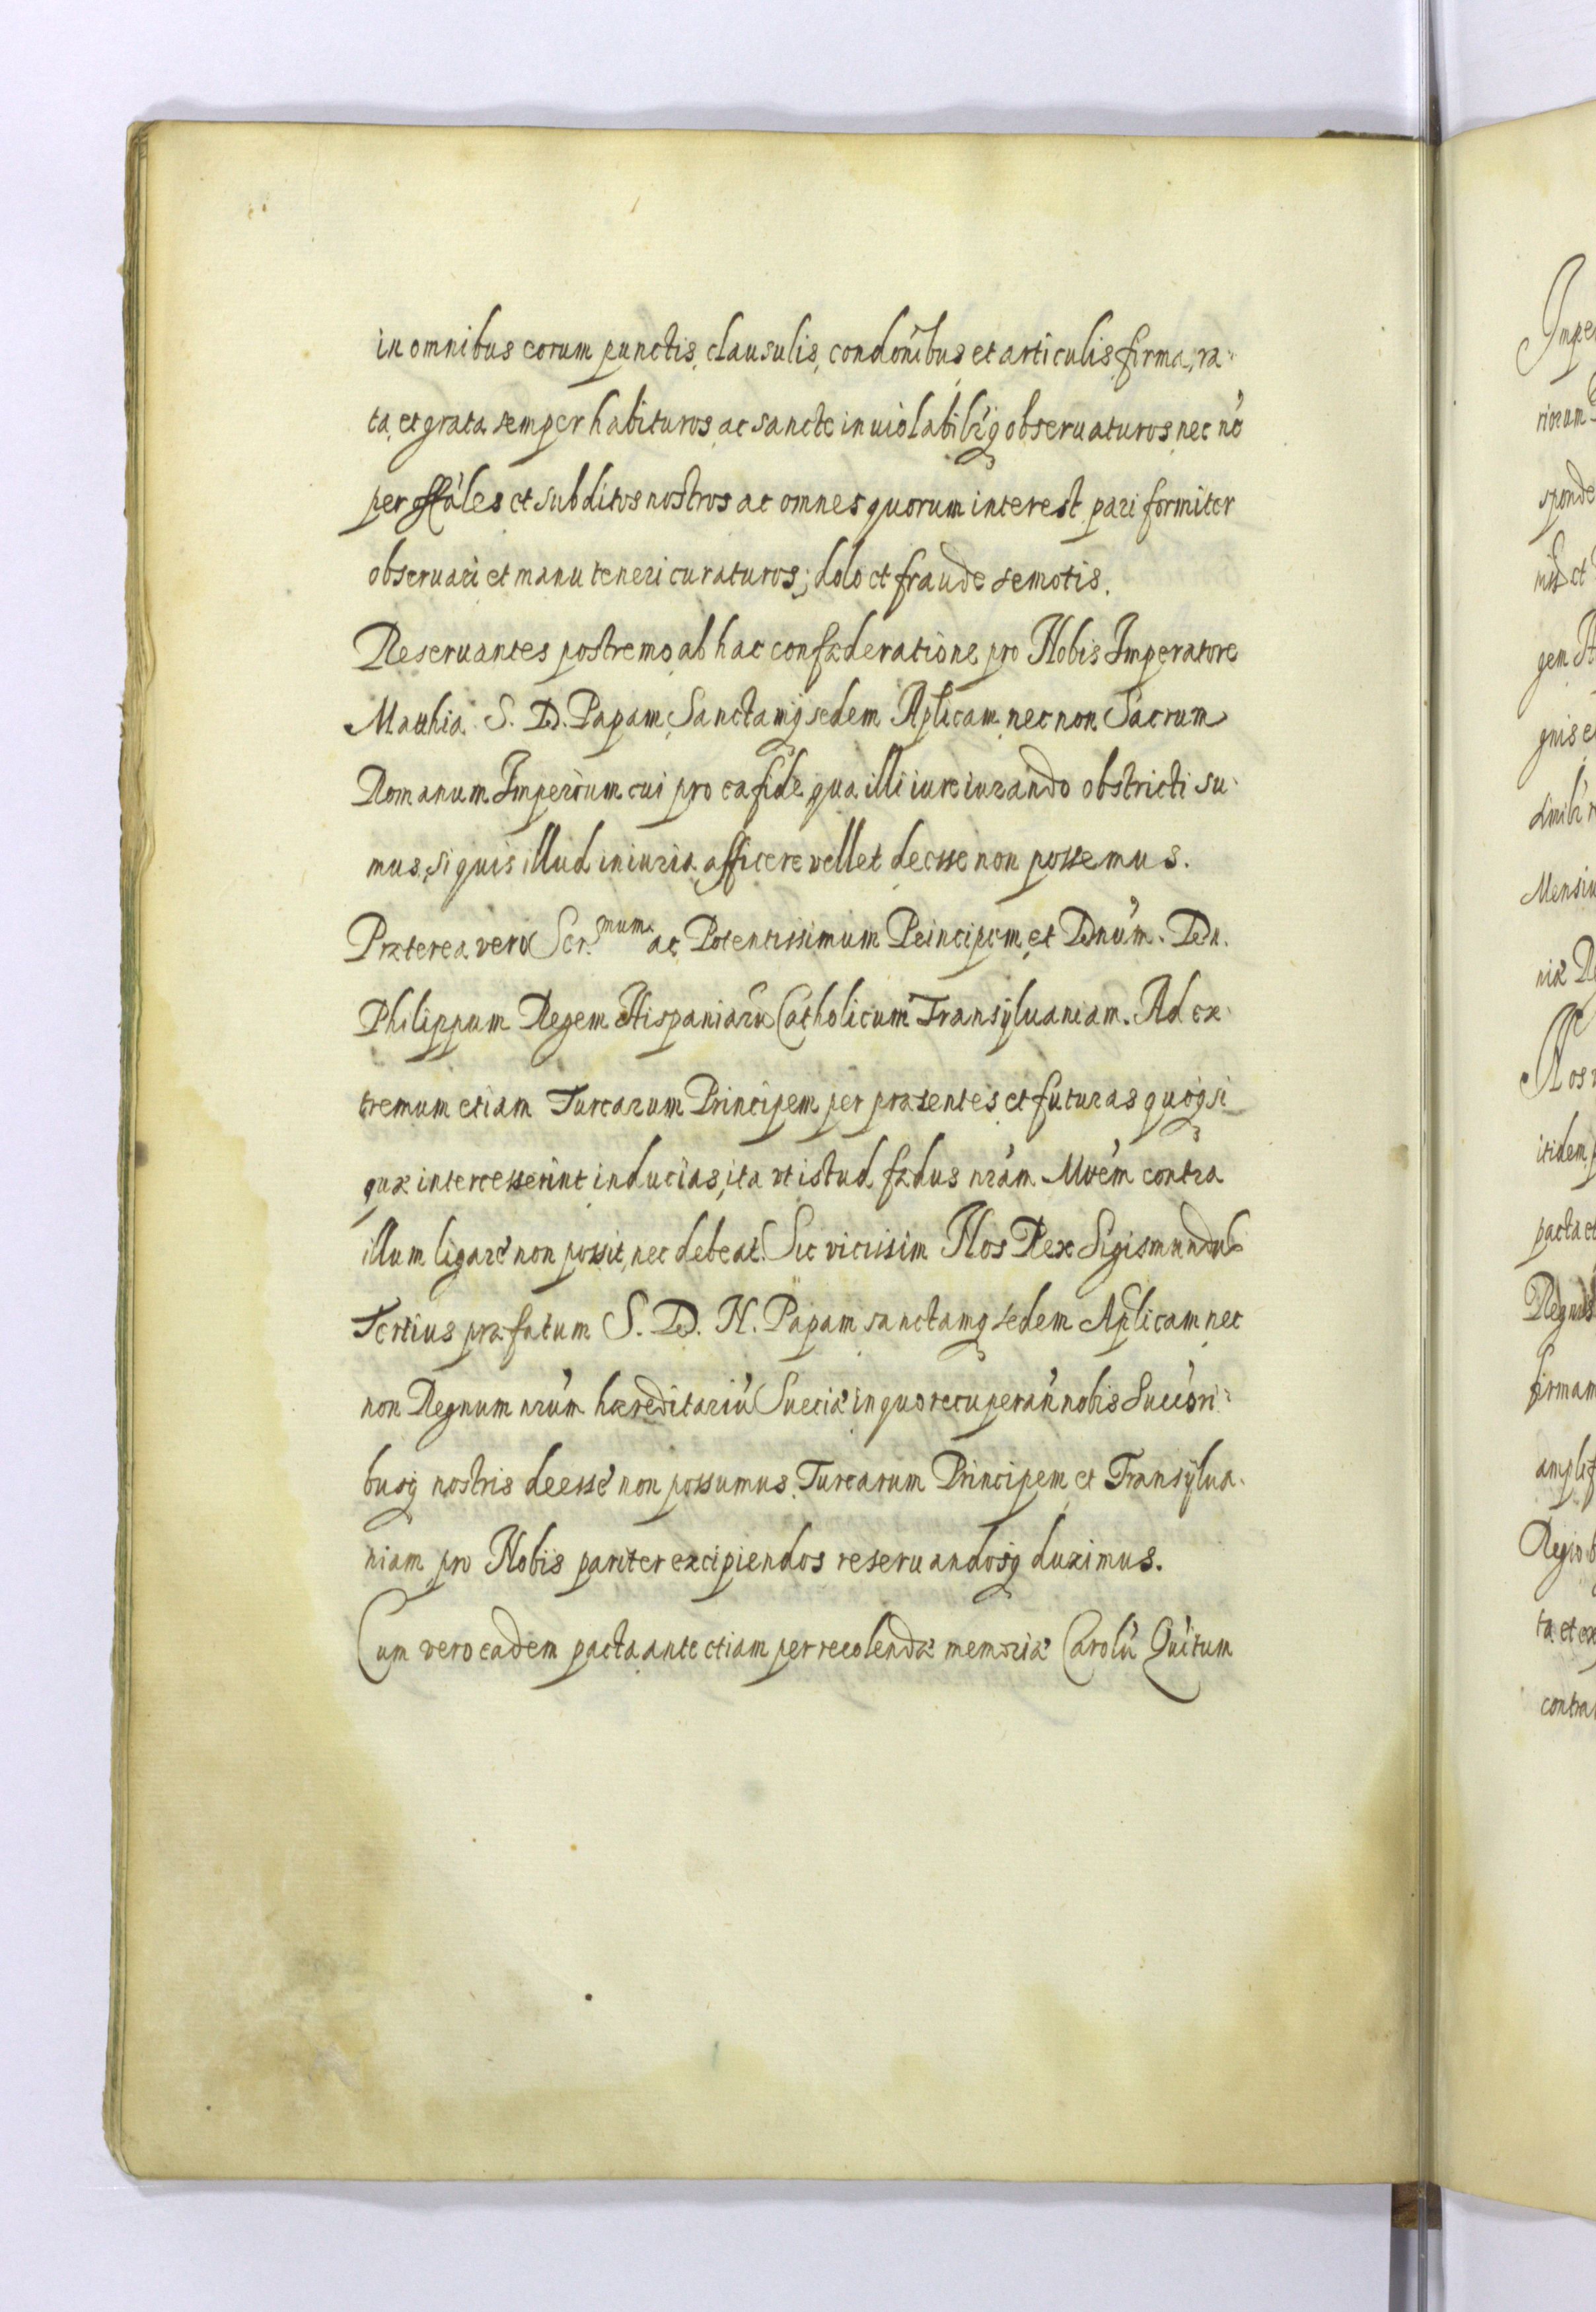 in omnibus eorum punctis, clausulis, condoñibus et articulis firma, ra-
ta, et grata semper habituros, ac sancte inuiolabilr̃q3 obseruaturos, nec nõ
per offãles et subditos nostros ac omnes quorum interest pari formiter
obseruari et manu teneri curaturos; dolo et fraude semotis.
Reseruantes postremo ab hac confæderatione pro Nobis Imperatore
Matthia S. D. Papam, Sanctamq3 sedem Aplicam nec non Sacrum
Romanum Imperium cui pro ea fide qua illi iure iurando obstricti su-
mus, si quis illud iniuria afficere vellet deesse non possemus.
Præterea vero Ser.mum ac Potentissimum Principem, et Dnúm. Dn.
Philippum Regem Hispaniarũ Catholicum Transÿluaniam. Ad ex-
tremum etiam Turcarum Principem per præsentes et futuras quoq3 si
quæ intercesserint inducias, ita vt istud fædus nrãm Mtẽm contra
illum ligare non possit, nec debeat. Sic vicissim Nos Rex Sigismundus
Tertius præfatum S. D. N. Papam sanctamq3 sedem Aplicam nec
non Regnum nrũm hæreditariũ Sueciæ in quo recuperañ nobis Succõri-
busq3 nostris deesse non possumus, Turcarum Principem et Transÿlua-
niam pro Nobis pariter excipiendos reseruandosq3 duximus.
Cum vero eadem pacta ante etiam per recolendæ memoriæ Carolũ Quĩtum
Impe
sponde
gem
gnis e
Mensiu
niæ
itidem
pacta et
Regnis
firmam
Regio
ta et
contra